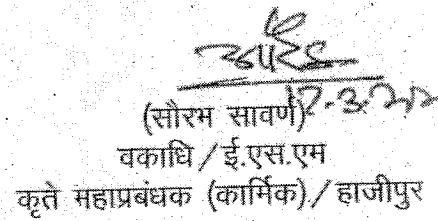 (सौरभ सावर्ण)
वकाधि/ई.एस.एम
कृते महाप्रबंधक (कार्मिक)/हाजीपुर